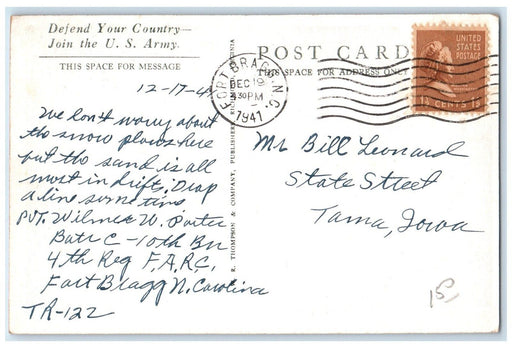 Defend Your Country—
Join the U. S. Army.
THIS SPACE FOR MESSAGE
POST CARD
THIS SPACE FOR ADDRESS ONLY
FORT BRAGG N.C.
DEC 19
4:30 PM
1941
UNITED
STATES
POSTAGE
CENTS
12-17-4
We don't worry about
the snow plows here
but the sand is all
most in drifts, Drop
a line sometime
PVT. Wilmer W. Porter
Batr C - 10th Bn
4th Reg F.A.R.C.
Fort Bragg N. Carolina
TR-122
Mr Bill Leonard
State Street
Tama, Iowa
R. THOMPSON & COMPANY, PUBLISHERS,